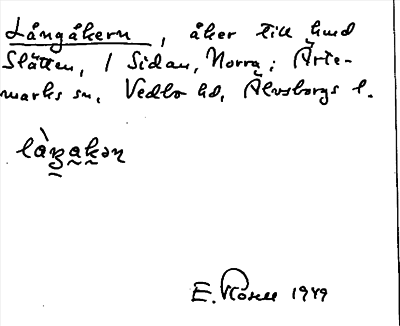 Långåkern, åker till hmd
Slätten, 1 Sidan, Norra; Ärte-
marks sn, Vedbo hd, Älvsborgs l.
E. Rosell 1949